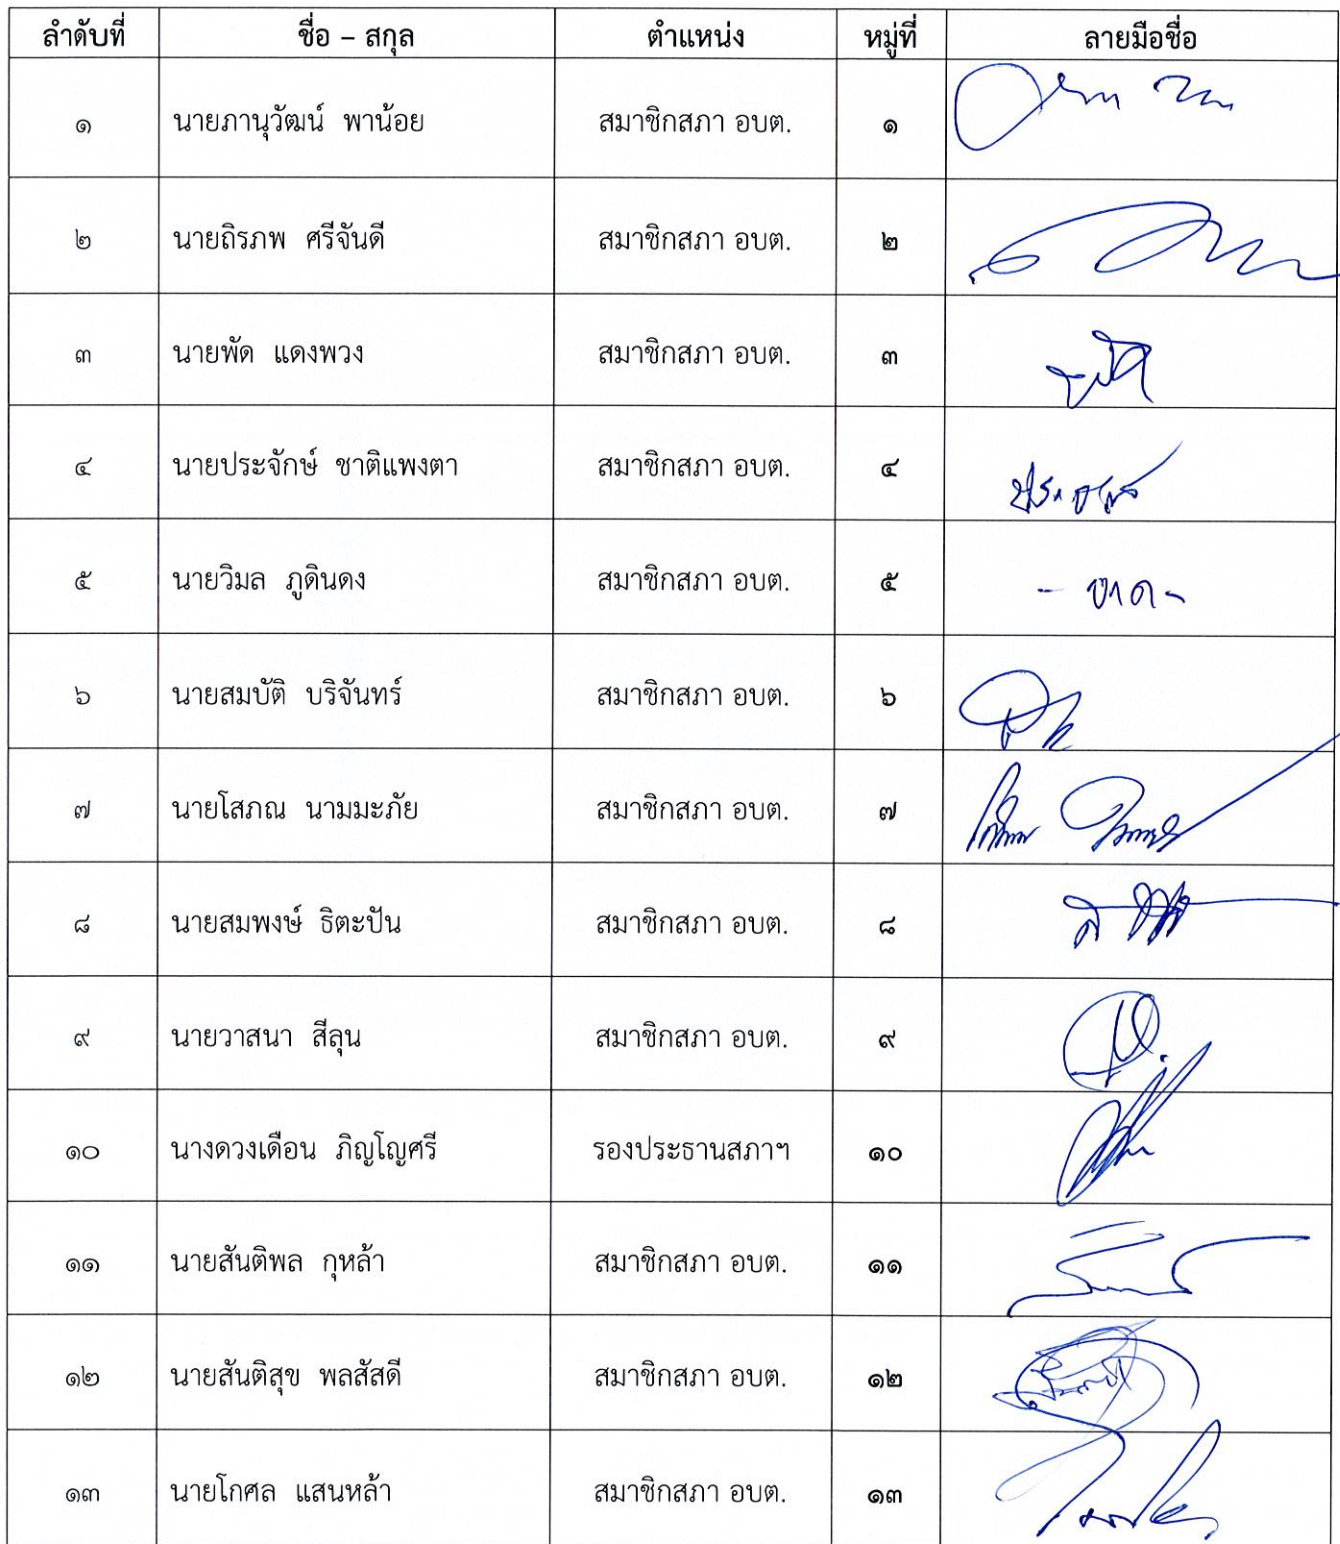 ลำดับที่ ชื่อ – สกุล ตำแหน่ง หมู่ที่ ลายมือชื่อ
๑ นายภานุวัฒน์ พาน้อย สมาชิกสภา อบต. ๑
๒ นายถิรภพ ศรีจันดี สมาชิกสภา อบต. ๒
๓ นายพัด แดงพวง สมาชิกสภา อบต. ๓
๔ นายประจักษ์ ชาติแพงตา สมาชิกสภา อบต. ๔
๕ นายวิมล ภูดินดง สมาชิกสภา อบต. ๕ - ขาด -
๖ นายสมบัติ บริจันทร์ สมาชิกสภา อบต. ๖
๗ นายโสภณ นามมะภัย สมาชิกสภา อบต. ๗
๘ นายสมพงษ์ ธิตะปัน สมาชิกสภา อบต. ๘
๙ นายวาสนา สีลุน สมาชิกสภา อบต. ๙
๑๐ นางดวงเดือน ภิญโญศรี รองประธานสภาฯ ๑๐
๑๑ นายสันติพล กุหล้า สมาชิกสภา อบต. ๑๑
๑๒ นายสันติสุข พลสัสดี สมาชิกสภา อบต. ๑๒
๑๓ นายโกศล แสนหล้า สมาชิกสภา อบต. ๑๓